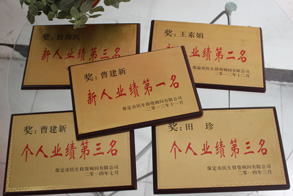 奖:
新人业绩第三名
奖:王素娟
新人业绩第二名
二〇一三年十二月
奖:曹建新
新人业绩第一名
保定市民生投资顾问有限公司
二〇一三年十一月
奖:曹建新
个人业绩第三名
保定市民生投资顾问有限公司
二〇一四年七月
奖:田 珍
个人业绩第三名
保定市民生投资顾问有限公司
二〇一四年